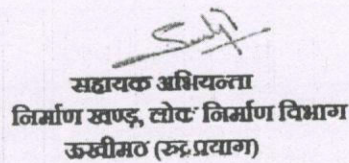 सहायक अभियन्ता
निर्माण खण्ड, लोक निर्माण विभाग
ऊखीमठ (रुद्रप्रयाग)